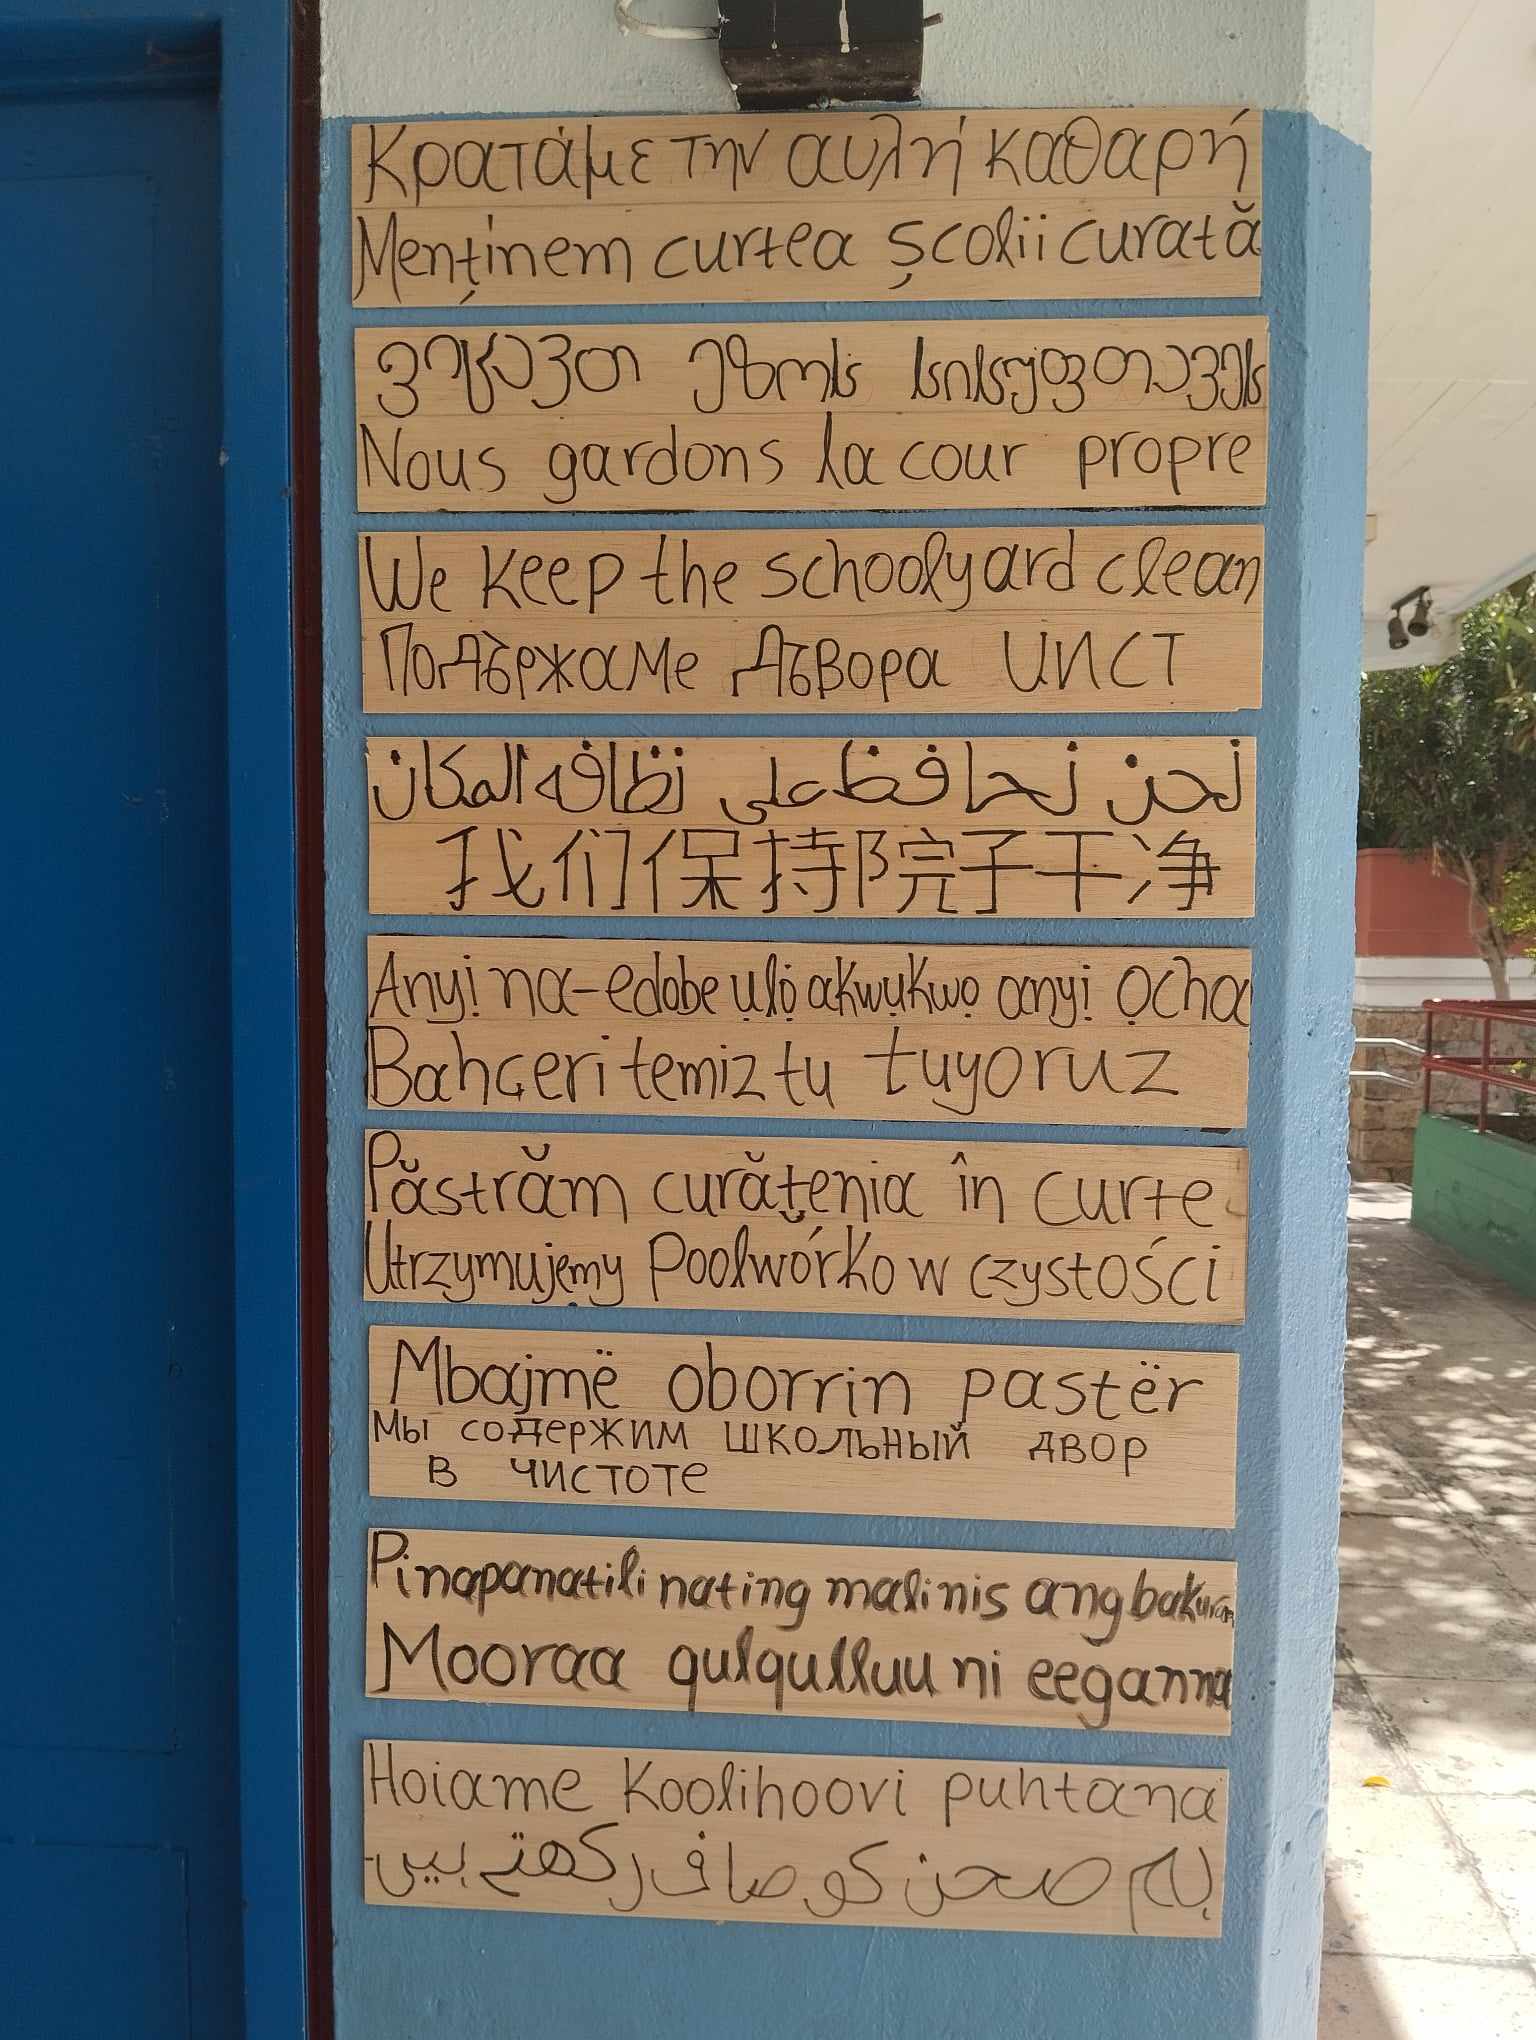 Κρατάμε την αυλή καθαρή
Menținem curtea școlii curată
ვიცავთ ეზოს სისუფთავეს
Nous gardons la cour propre
We keep the schoolyard clean
Подържаме двора чист
نحن نحافظ على نظافه المكان
我们保持院子干净
Anyị na-edobe ụlọ akwụkwọ anyị ọcha
Bahçeri temiz tu tuyoruz
Păstrăm curățenia în curte
Utrzymujęmy Poolwórko w czystości
Mbajmë oborrin pastër
мы содержим школьный двор
в чистоте
Pinapanatili nating malinis ang bakuran
Mooraa qulqulluu ni eeganna
Hoiame Koolihoovi puhtana
ہم صحن کو صاف رکھتے ہیں